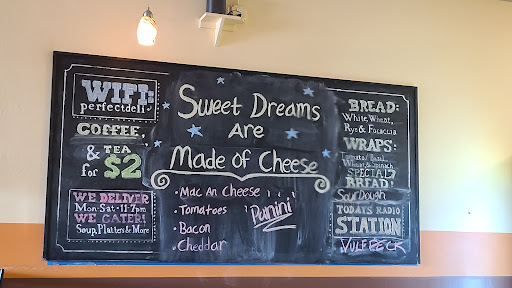 WIFI:
perfectdeli
COFFEE,
& TEA
for $2
WE DELIVER
Mon-Sat · 11-7pm
WE CATER!
Soup, Platters & More
Sweet Dreams
Are
Made of Cheese
• Mac An Cheese
• Tomatoes
• Bacon
• Cheddar
Panini
BREAD:
White, Wheat,
Rye & Focaccia
WRAPS:
Tomato/Basil,
Wheat & Spinach
SPECIAL
BREAD!
SourDough
TODAYS RADIO
STATION
VULFPECK